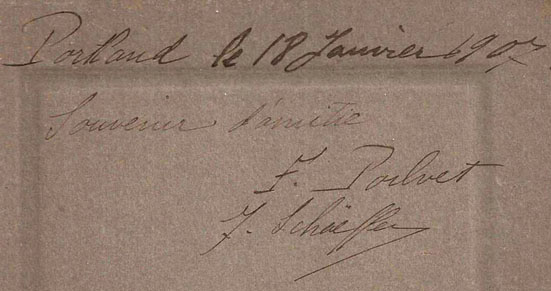 Portland le 18 Janvier 1907
Souvenir d'amitié
F. Poilvet
F. Schaëffer